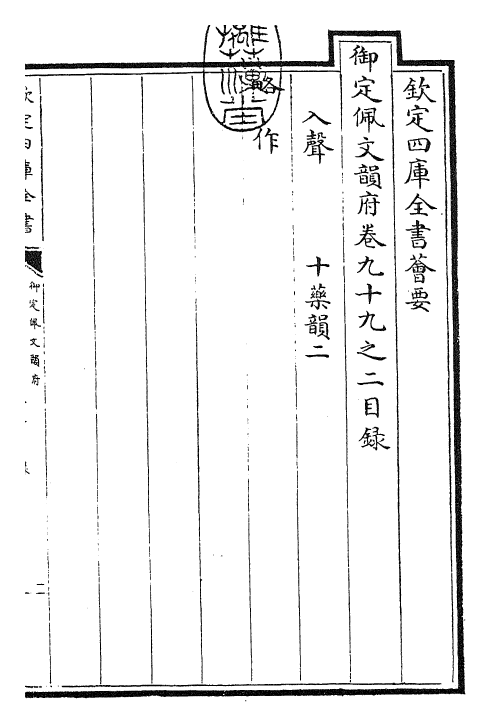 欽定四庫全書薈要
御定佩文韻府卷九十九之二目録
入聲 十藥韻二
略 作
欽定四庫全書
御定佩文韻府